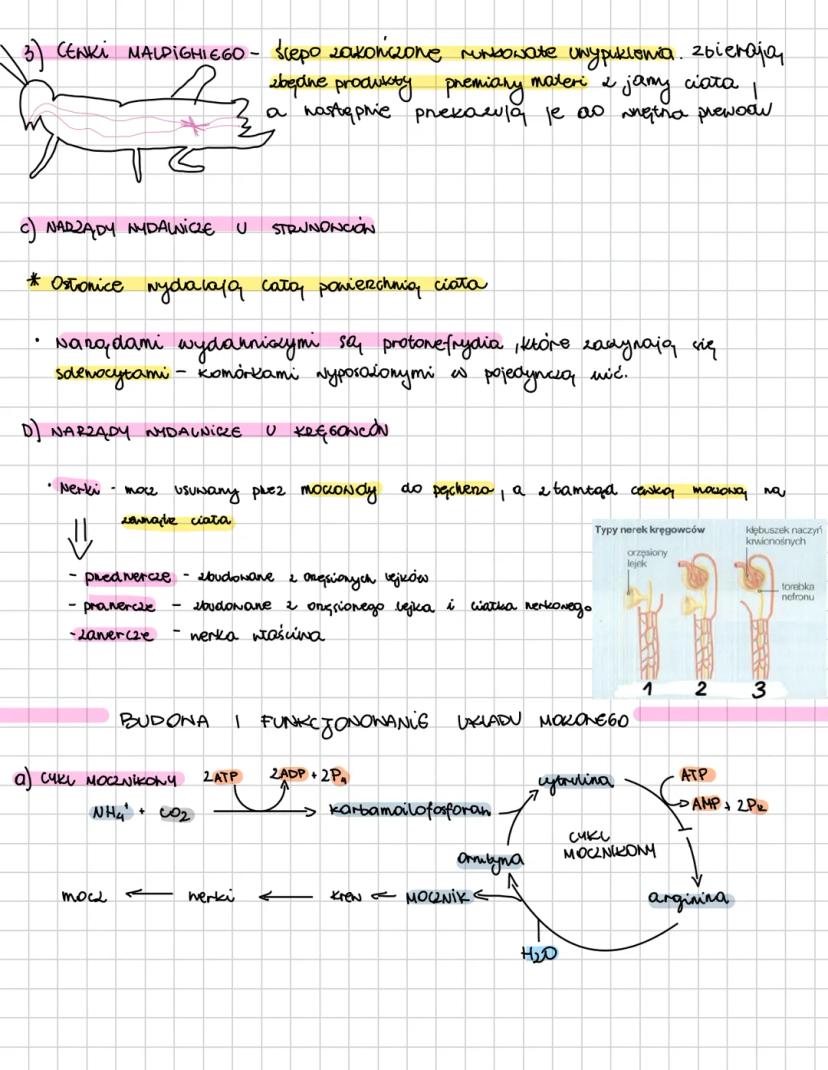 3) CEWKI MALPIGHIEGO - ślepo zakończone rurkowate uwypuklenia. zbierają
zbędne produkty przemiany materi z jamy ciała,
a następnie przekazują je do wnętrza przewodu
C) NARZĄDY WYDALNICZE U STRUNOWCÓW
* Osłonice wydalają całą powierzchnią ciała
• Narządami wydalniczymi są protonefrydia, które zaczynają się
solenocytami - komórkami wyposażonymi w pojedynczą wić.
D) NARZĄDY WYDALNICZE U KRĘGOWCÓW
• Nerki - mocz usuwany przez moczowody do pęcherza, a stamtąd cewką moczową na
zewnątrz ciała
- przednercze - zbudowane z orzęsionych lejków
- pranercze - zbudowane z orzęsionego lejka i ciałka nerkowego
- zanercze - nerka właściwa
Typy nerek kręgowców
kłębuszek naczyń
krwionośnych
orzęsiony
lejek
torebka
nefronu
1 2 3
BUDOWA I FUNKCJONOWANIE UKŁADU MOCZOWEGO
a) CYKL MOCZNIKOWY
2ATP 2ADP + 2Pi
NH4+ + CO2
karbamoilofosforan
cytrulina
ATP
AMP + 2Pi
CYKL
MOCZNIKOWY
Ornityna
arginina
mocz ← nerki ← krew ← MOCZNIK
H2O